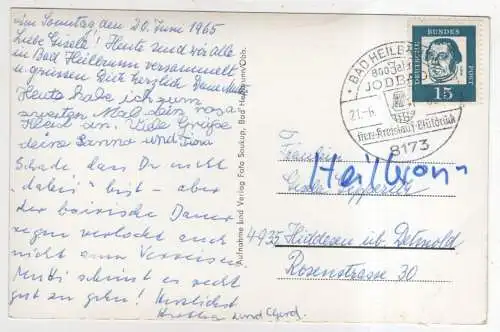 Am Sonntag den 20. Juni 1965
Liebe Gisela! Heute sind wir Alle
in Bad Heilbrunn versammelt
u. grüssen Dich herzlich
Heute habe ich zum
zweiten Mal dein rosa
Kleid an. Viele Grüße
deine Sanna und
Schade, dass Du nicht
"dabei" bist – aber
der bairische Dauer
regen verlockt auch
nicht zum Verreisen.
Mutti scheint es recht
gut zu gehn! Herzlichst
und Gerd.
Aufnahme und Verlag Foto Soukup, Bad Heilbrunn/Obb.
BAD HEILBRUNN
JODBAD
21.-6.
Herz-Kreislauf-Blutdruck
8173
DEUTSCHE BUNDESPOST
15
Fräulein
Gisela
Heilbronn
4935 Hiddesen üb. Detmold
Rosenstrasse 30